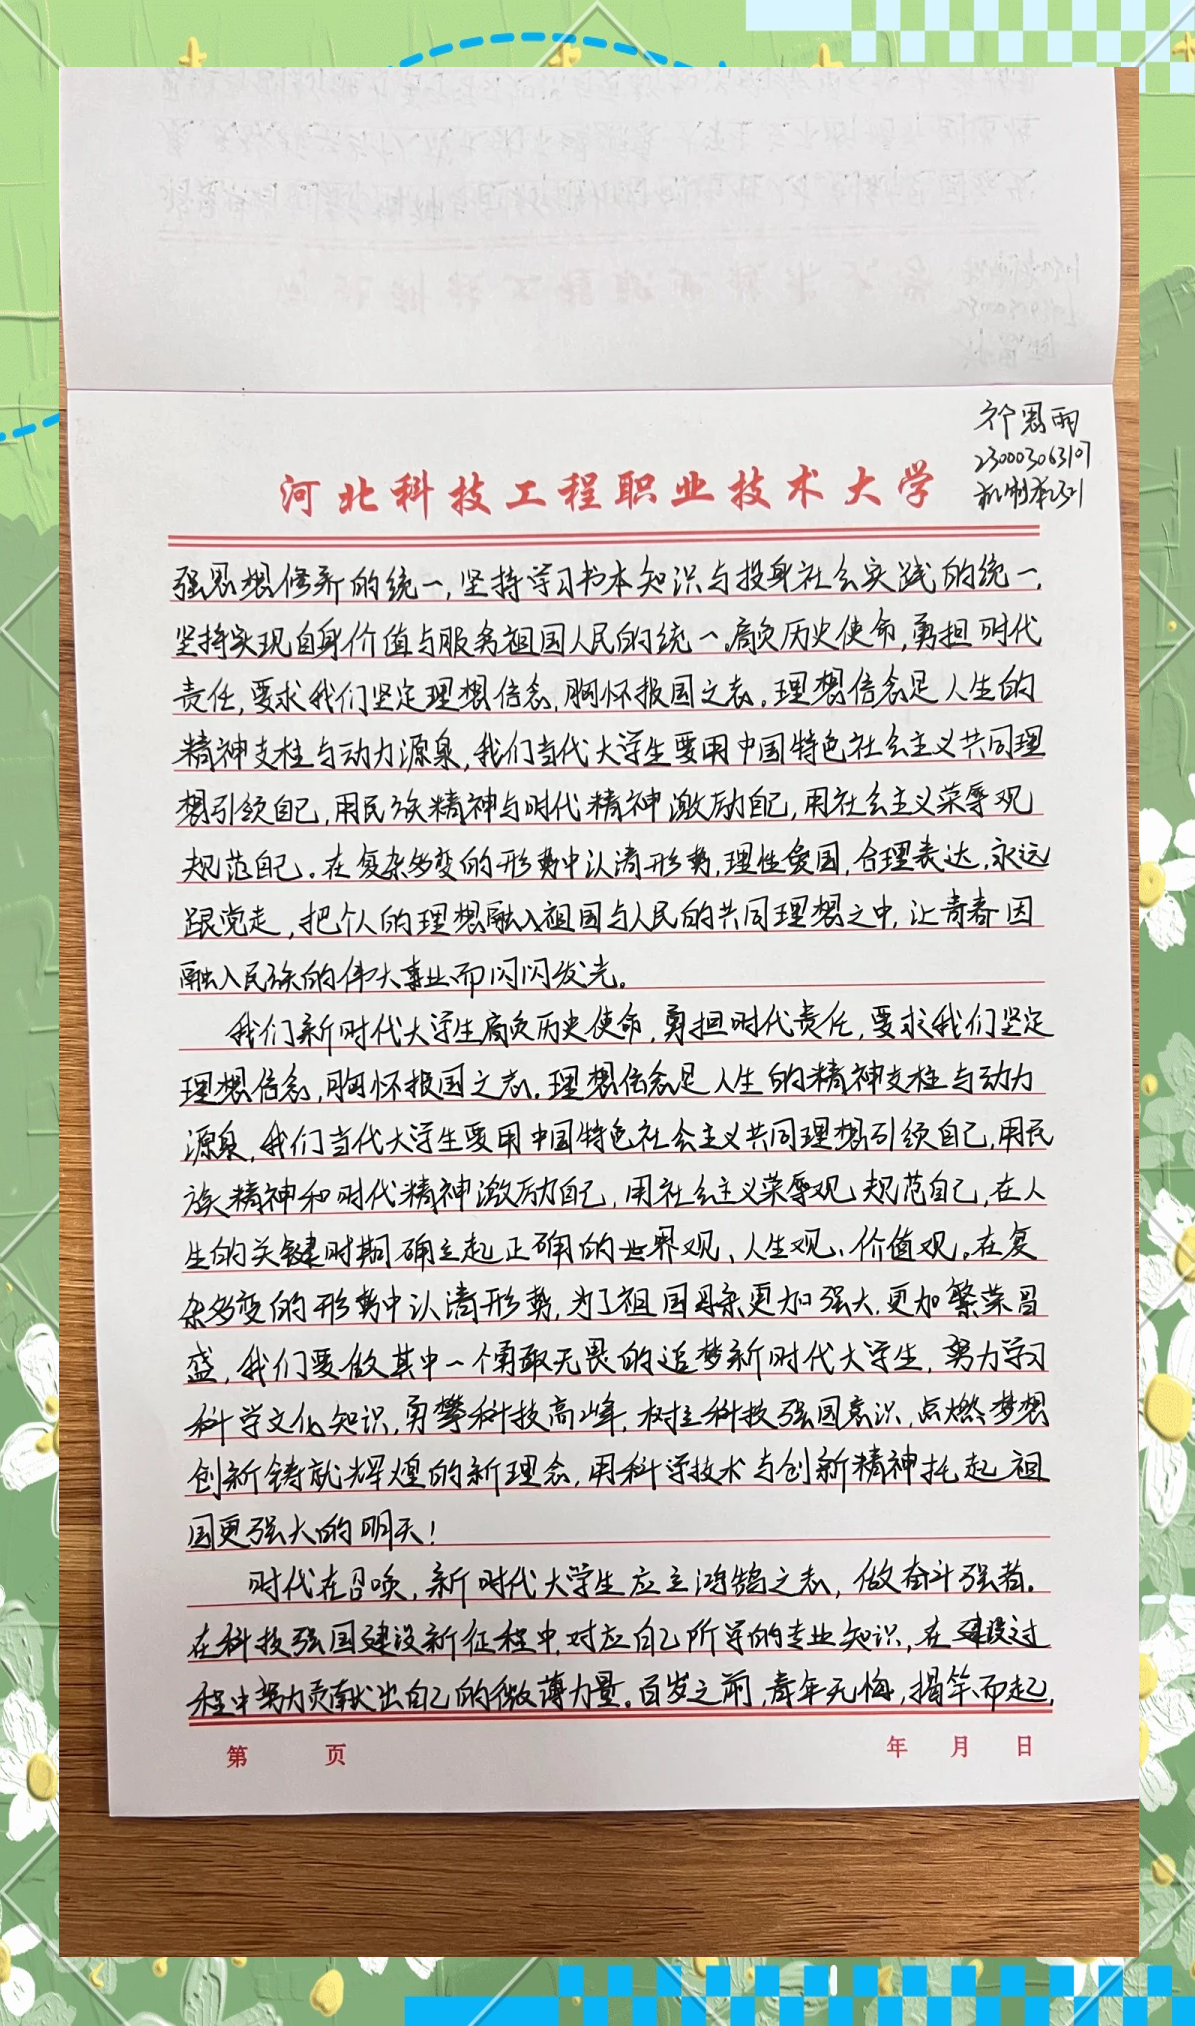 思雨
23000306310
河北科技工程职业技术大学
强思想修养的统一,坚持学习书本知识与投身社会实践的统一,
坚持实现自身价值与服务祖国人民的统一。肩负历史使命,勇担时代
责任,要求我们坚定理想信念,胸怀报国之志。理想信念是人生的
精神支柱与动力源泉,我们当代大学生要用中国特色社会主义共同理
想引领自己,用民族精神与时代精神激励自己,用社会主义荣辱观
规范自己。在复杂多变的形势中认清形势,理性爱国,合理表达,永远
跟党走,把个人的理想融入祖国与人民的共同理想之中,让青春因
融入民族的伟大事业而闪闪发光。
我们新时代大学生肩负历史使命,勇担时代责任,要求我们坚定
理想信念,胸怀报国之志。理想信念是人生的精神支柱与动力
源泉,我们当代大学生要用中国特色社会主义共同理想引领自己,用民
族精神和时代精神激励自己,用社会主义荣辱观规范自己,在人
生的关键时期确立起正确的世界观、人生观、价值观。在复
杂多变的形势中认清形势,为了祖国母亲更加强大,更加繁荣昌
盛,我们要做其中一个勇敢无畏的追梦新时代大学生,努力学习
科学文化知识,勇攀科技高峰,树立科技强国意识,点燃梦想
创新铸就辉煌的新理念,用科学技术与创新精神托起祖
国更强大的明天!
时代在召唤,新时代大学生应立鸿鹄之志,做奋斗强者。
在科技强国建设新征程中,对应自己所学的专业知识,在建设过
程中努力贡献出自己的微薄力量。百岁之前,青年无悔,揭竿而起,
第 页 年 月 日